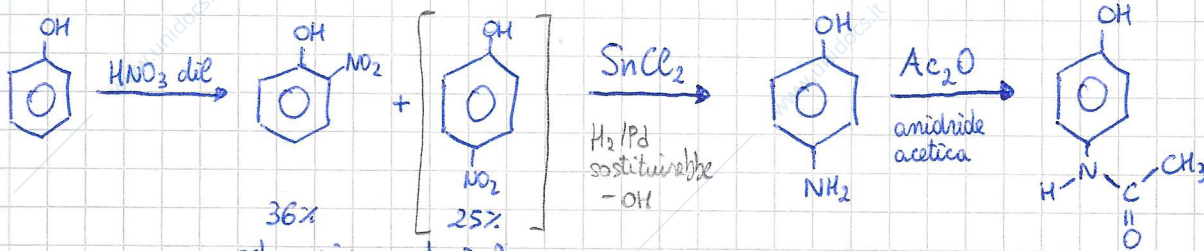 OH
HNO₃ dil
OH
NO₂
36%
+
OH
NO₂
25%
SnCl₂
H₂/Pd
sostituirebbe
-OH
OH
NH₂
Ac₂O
anidride
acetica
OH
H
N
C
CH₃
O